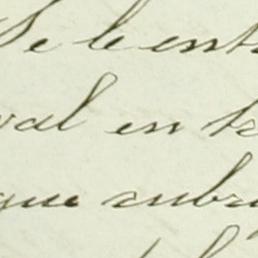 Se le ent
val en tr
que cubr